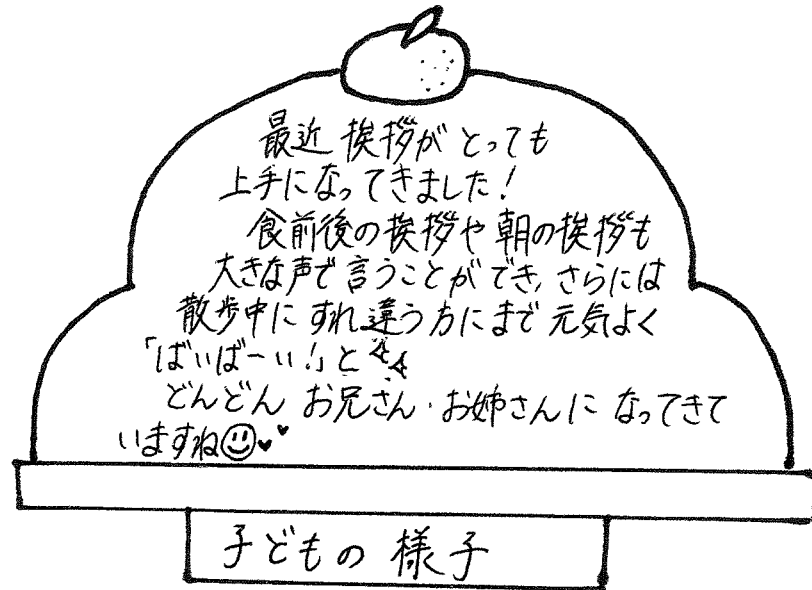 最近 挨拶が とっても
上手になってきました!
食前後の挨拶や 朝の挨拶も
大きな声で言うことができ、さらには
散歩中に すれ違う方にまで 元気よく
「ばいばーい!」と
どんどん お兄さん・お姉さんに なってきて
いますね
子どもの 様子